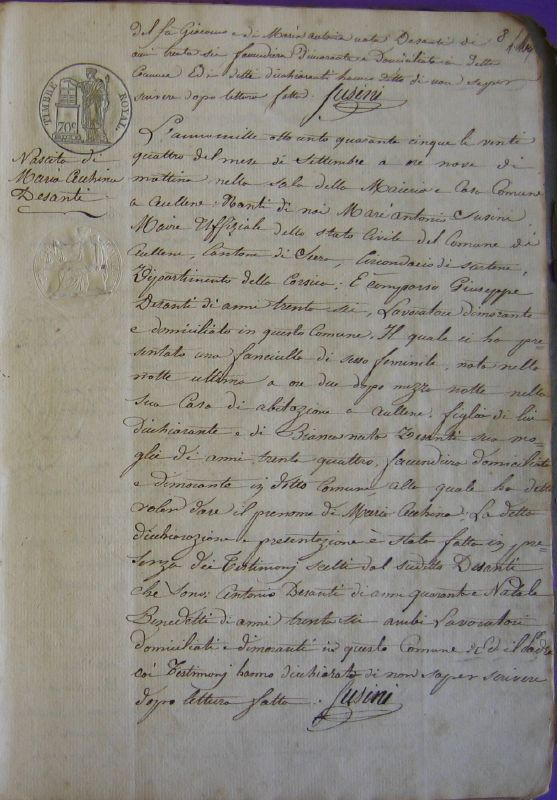 del fu Giacomo e di Maria Antonia nata Desanti di
anni trenta sei facendiera dimorante e Domiciliata in detto
Comune Ed i detti dichiaranti hanno detto di non saper
scrivere dopo lettura fatta. Susini
8
TIMBRE ROYAL.
70c
Nascita di
Maria Cecchina
Desanti
L'anno mille otto cento quaranta cinque li venti
quattro del mese di Settembre a ore nove di
mattina nella sala della Maieria e Casa Comune
a Aullene: Nanti di noi Marc'Antonio Susini
Maire Uffiziale dello stato Civile del Comune di
Aullene, Cantone di Serra, Circondario di Sartene,
Dipartimento della Corsica: È comparso Giuseppe
Desanti di anni trenta sei, Lavoratore dimorante
e domiciliato in questo Comune, Il quale ci ha pre-
sentato una fanciulla di sesso feminile, nata nella
notte ultima a ore due dopo mezza notte nella
sua Casa di abitazione a Aullene, figlia di lui
dichiarante e di Bianca nata Desanti sua mo-
glie di anni trenta quattro, facendiera domiciliata
e dimorante in detto Comune, alla quale ha detto
voler dare il prenome di Maria Cecchina; La detta
dichiarazione e presentazione è stata fatta in pre-
senza dei Testimonj scelti dal sudetto Desanti
che sono: Antonio Desanti di anni quaranta e Natale
Benedetti di anni trenta sei ambi Lavoratori
domiciliati e dimoranti in questo Comune Ed il Padre
coi Testimonj hanno dichiarato di non saper scrivere
dopo lettura fatta. Susini